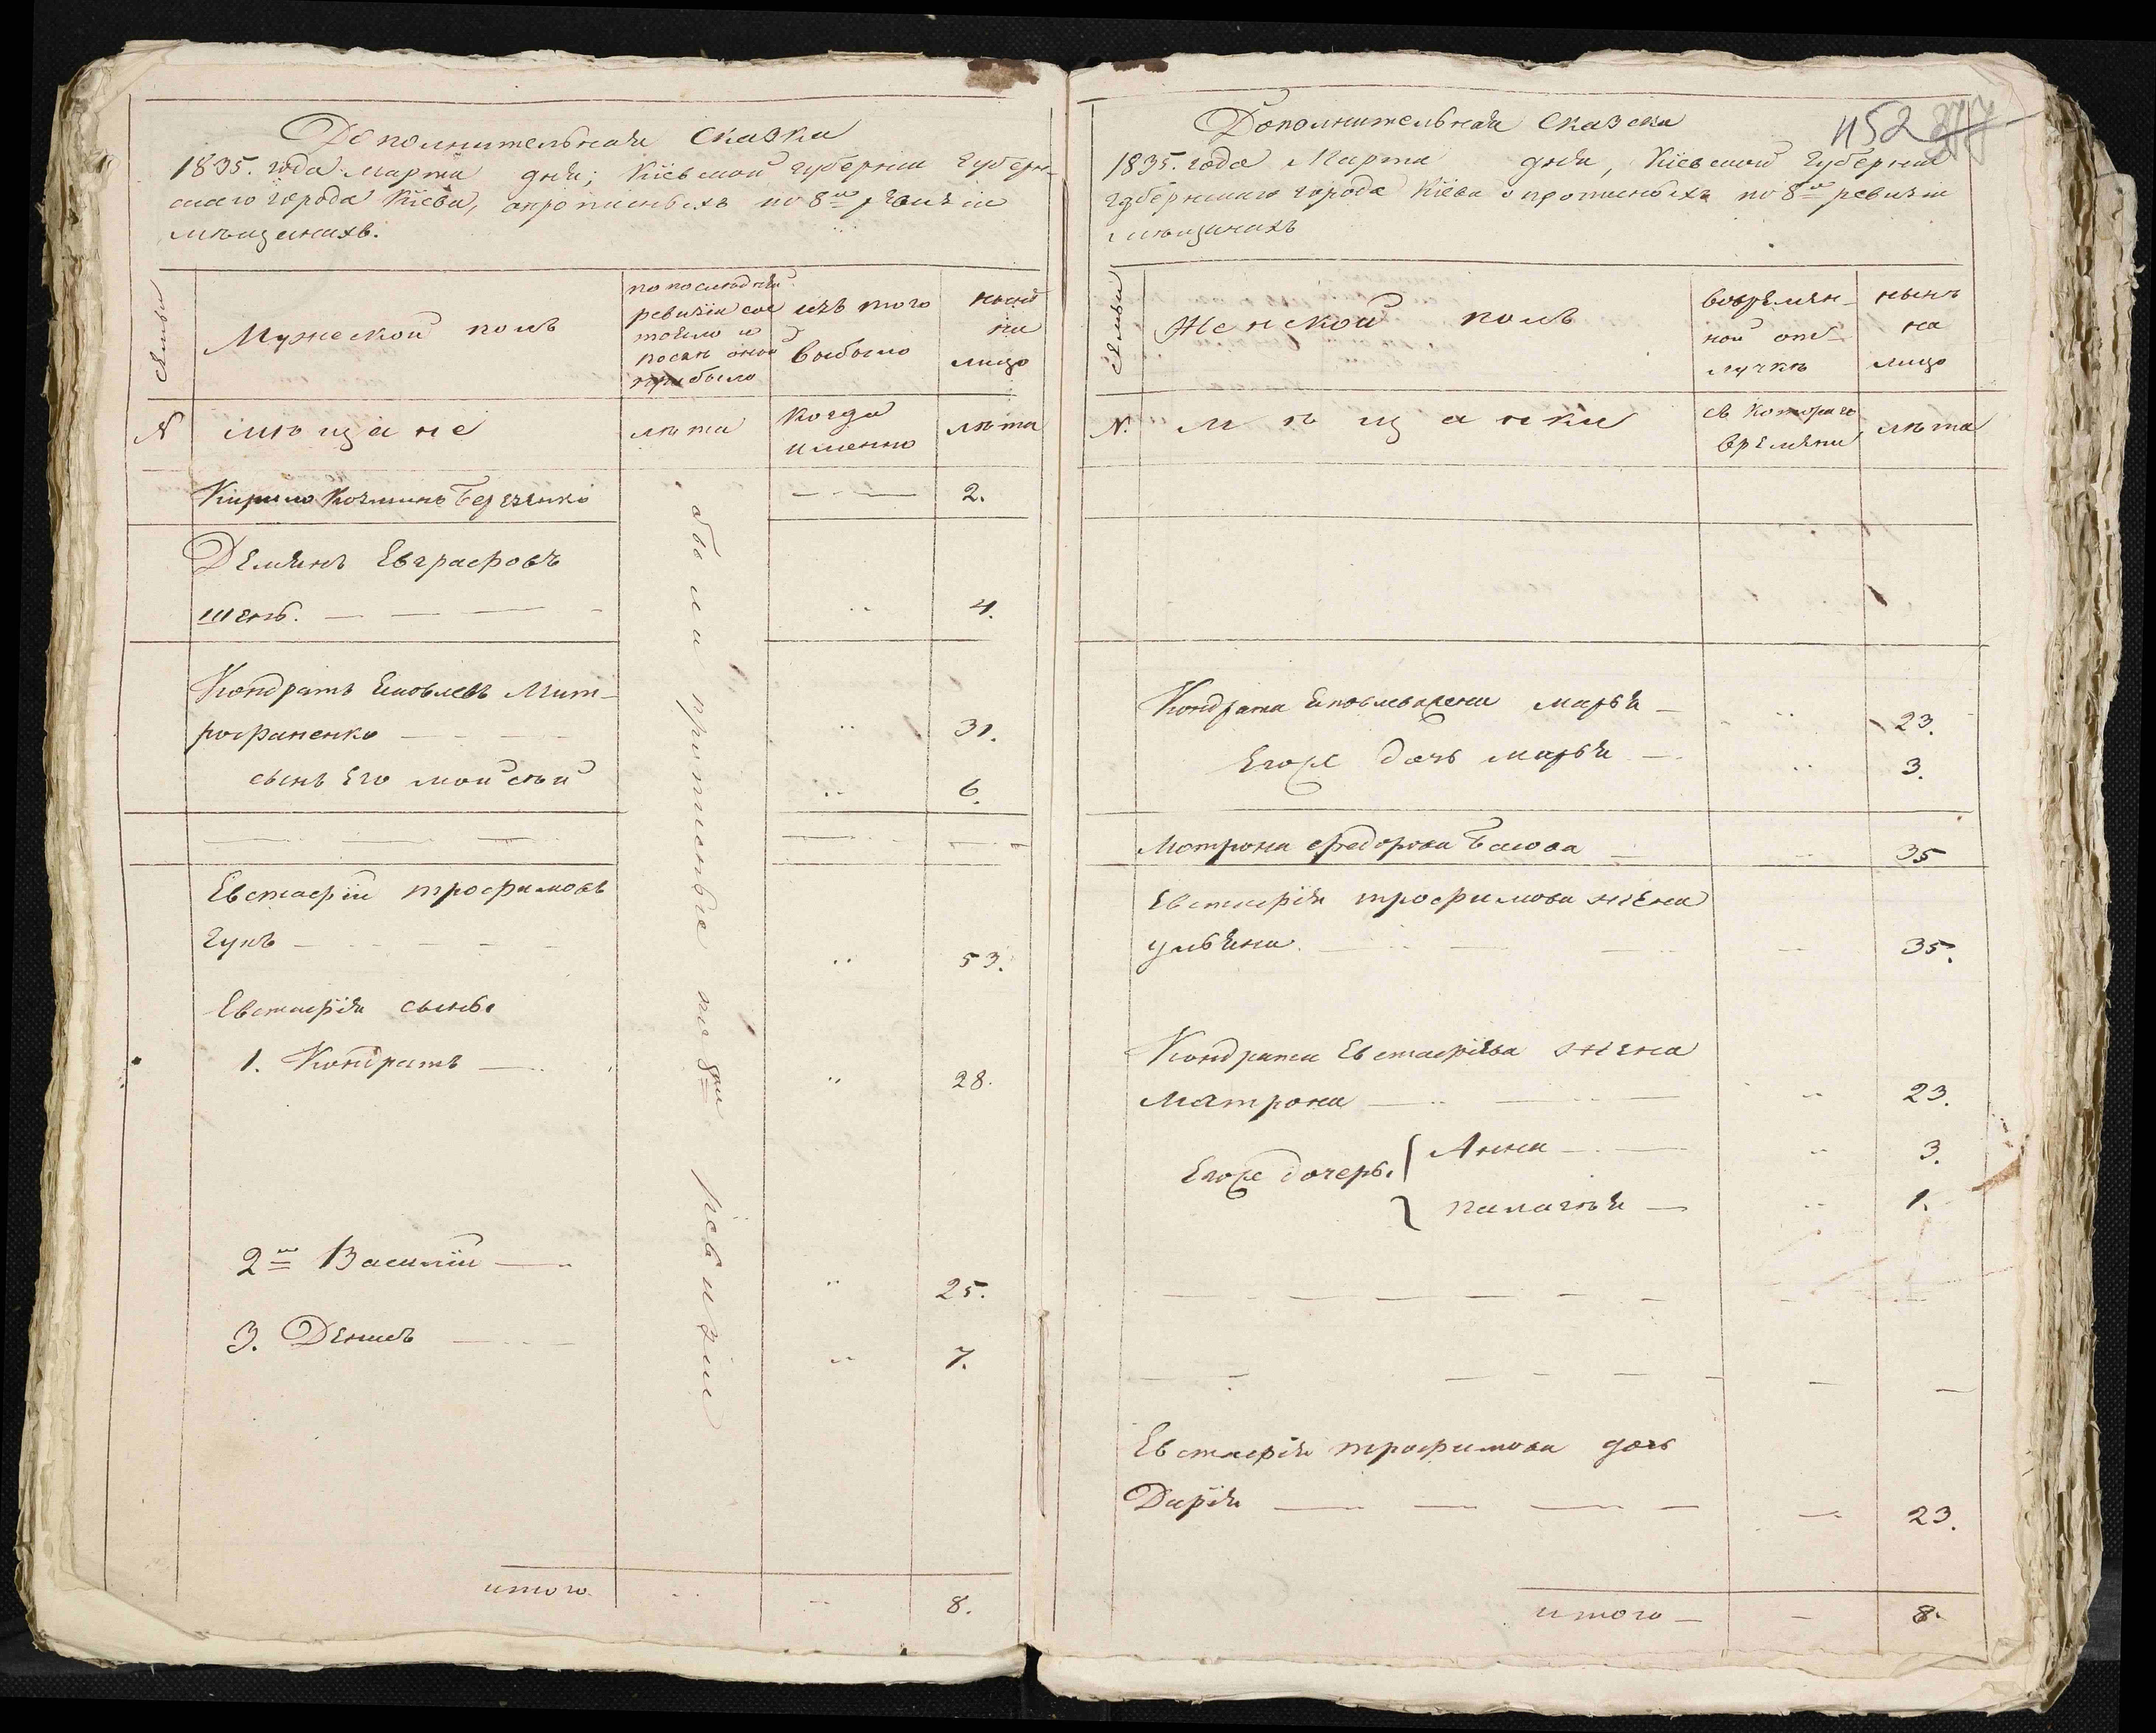 Дополнительная Сказка
1835. года Марта дня; Кіевской губерніи Губерн-
скаго города Кіева, опрописныхъ по 8й ревизіи
мѣщанахъ.
Семьи
Мужеской полъ
по последней
ревизіи сос
тояло и
послѣ оной
прибыло
изъ того
выбыло
нынѣ
на
лицо
N
мѣщане
лѣта
когда
именно
лѣта
Кирило Козминъ Березенко
2.
Демянъ Евграфовъ
Шень.
4.
Кондратъ Яковлевъ Мит-
рофаненко
31.
сынъ его мойсѣй
6.
Евстафій трофимовъ
Гукъ
53.
Евстафія сыны
1. Кондратъ
28.
2й Василій
25.
3. Денисъ
7.
прописные по 8й ревизіи
итого
8.
1152
Дополнительная Сказска
1835. года Марта дня, Кіевской Губерніи
губернскаго города Кіева опрописныхъ по 8й ревизіи
мѣщанахъ
Семьи
Женской полъ
вовремян-
ной от-
лучкѣ
нынѣ
на
лицо
N.
мѣщанки
съ котораго
времяни
лѣта
Кондрата Яковлева жена марья
23.
Егоже дочь марья
3.
Мотрона федорова Басова
35
Евстафія трофимова жена
ульяна
35.
Кондрата Евстафіева жена
Матрона
23.
Егоже дочеры
Анна
3.
палагѣя
1.
Евстафія трофимова дочь
Дарія
23.
итого
8.